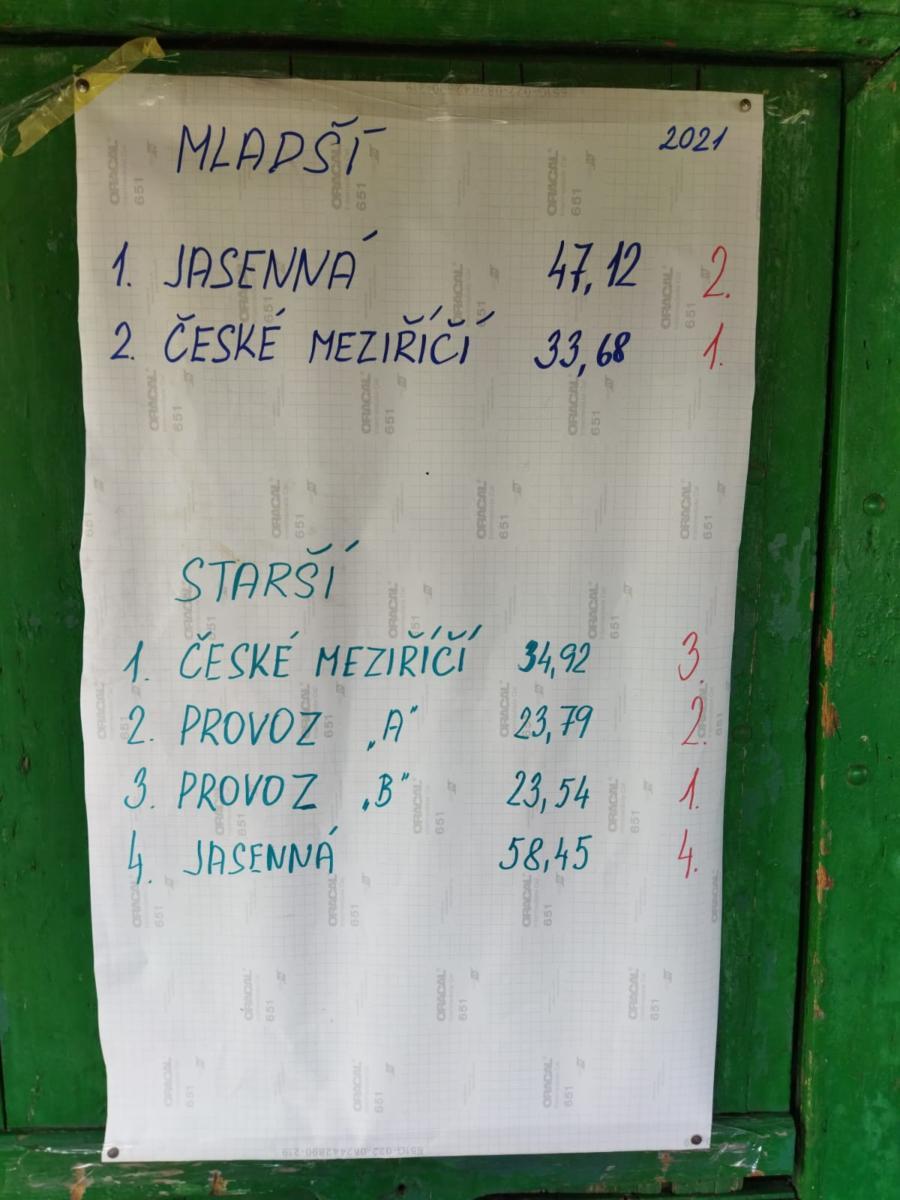 MLADŠÍ 2021
1. JASENNÁ 47,12 2.
2. ČESKÉ MEZIŘÍČÍ 33,68 1.
STARŠÍ
1. ČESKÉ MEZIŘÍČÍ 34,92 3.
2. PROVOZ „A“ 23,79 2.
3. PROVOZ „B“ 23,54 1.
4. JASENNÁ 58,45 4.
ORACAL 651